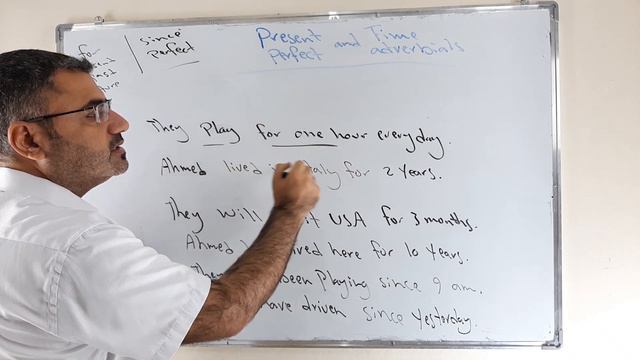 for
since
perfect
Present and Time
Perfect adverbials
They play for one hour everyday.
Ahmed lived for 2 years.
They will USA for 3 months.
Ahmed here for 10 years.
playing since 9 am.
have driven since yesterday.